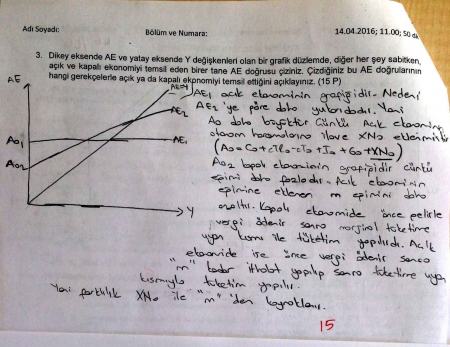 Adı Soyadı: Bölüm ve Numara: 14.04.2016; 11.00; 50 da
3. Dikey eksende AE ve yatay eksende Y değişkenleri olan bir grafik düzlemde, diğer her şey sabitken,
açık ve kapalı ekonomiyi temsil eden birer tane AE doğrusu çiziniz. Çizdiğiniz bu AE doğrularının
hangi gerekçelerle açık ya da kapalı ekonomiyi temsil ettiğini açıklayınız. (15 P)
AE
AE=Y
AE2
AE1
Ao1
Ao2
Y
AE1 açık ekonominin grafiğidir. Nedeni
AE2'ye göre daha yukarıdadır. Yani
Ao daha büyüktür Çünkü Açık ekonomiye
otonom harcamalara ilave XNo eklenmiştir
(Ao = Co + cTRo - cTo + Io + Go + XNo)
Ao2 kapalı ekonominin grafiğidir çünkü
eğimi daha fazladır. Açık ekonominin
eğimine eklenen m eğimini daha
azaltır. Kapalı ekonomide önce gelirle
vergi ödenir sonra marjinal tüketime
uyan kısmı ile tüketim yapılırdı. Açık
ekonomide ise önce vergi ödenir sonra
"m" kadar ithalat yapılıp sonra tüketime uyan
kısmıyla tüketim yapılır.
Yani farklılık XNo ile "m" den kaynaklanır.
15